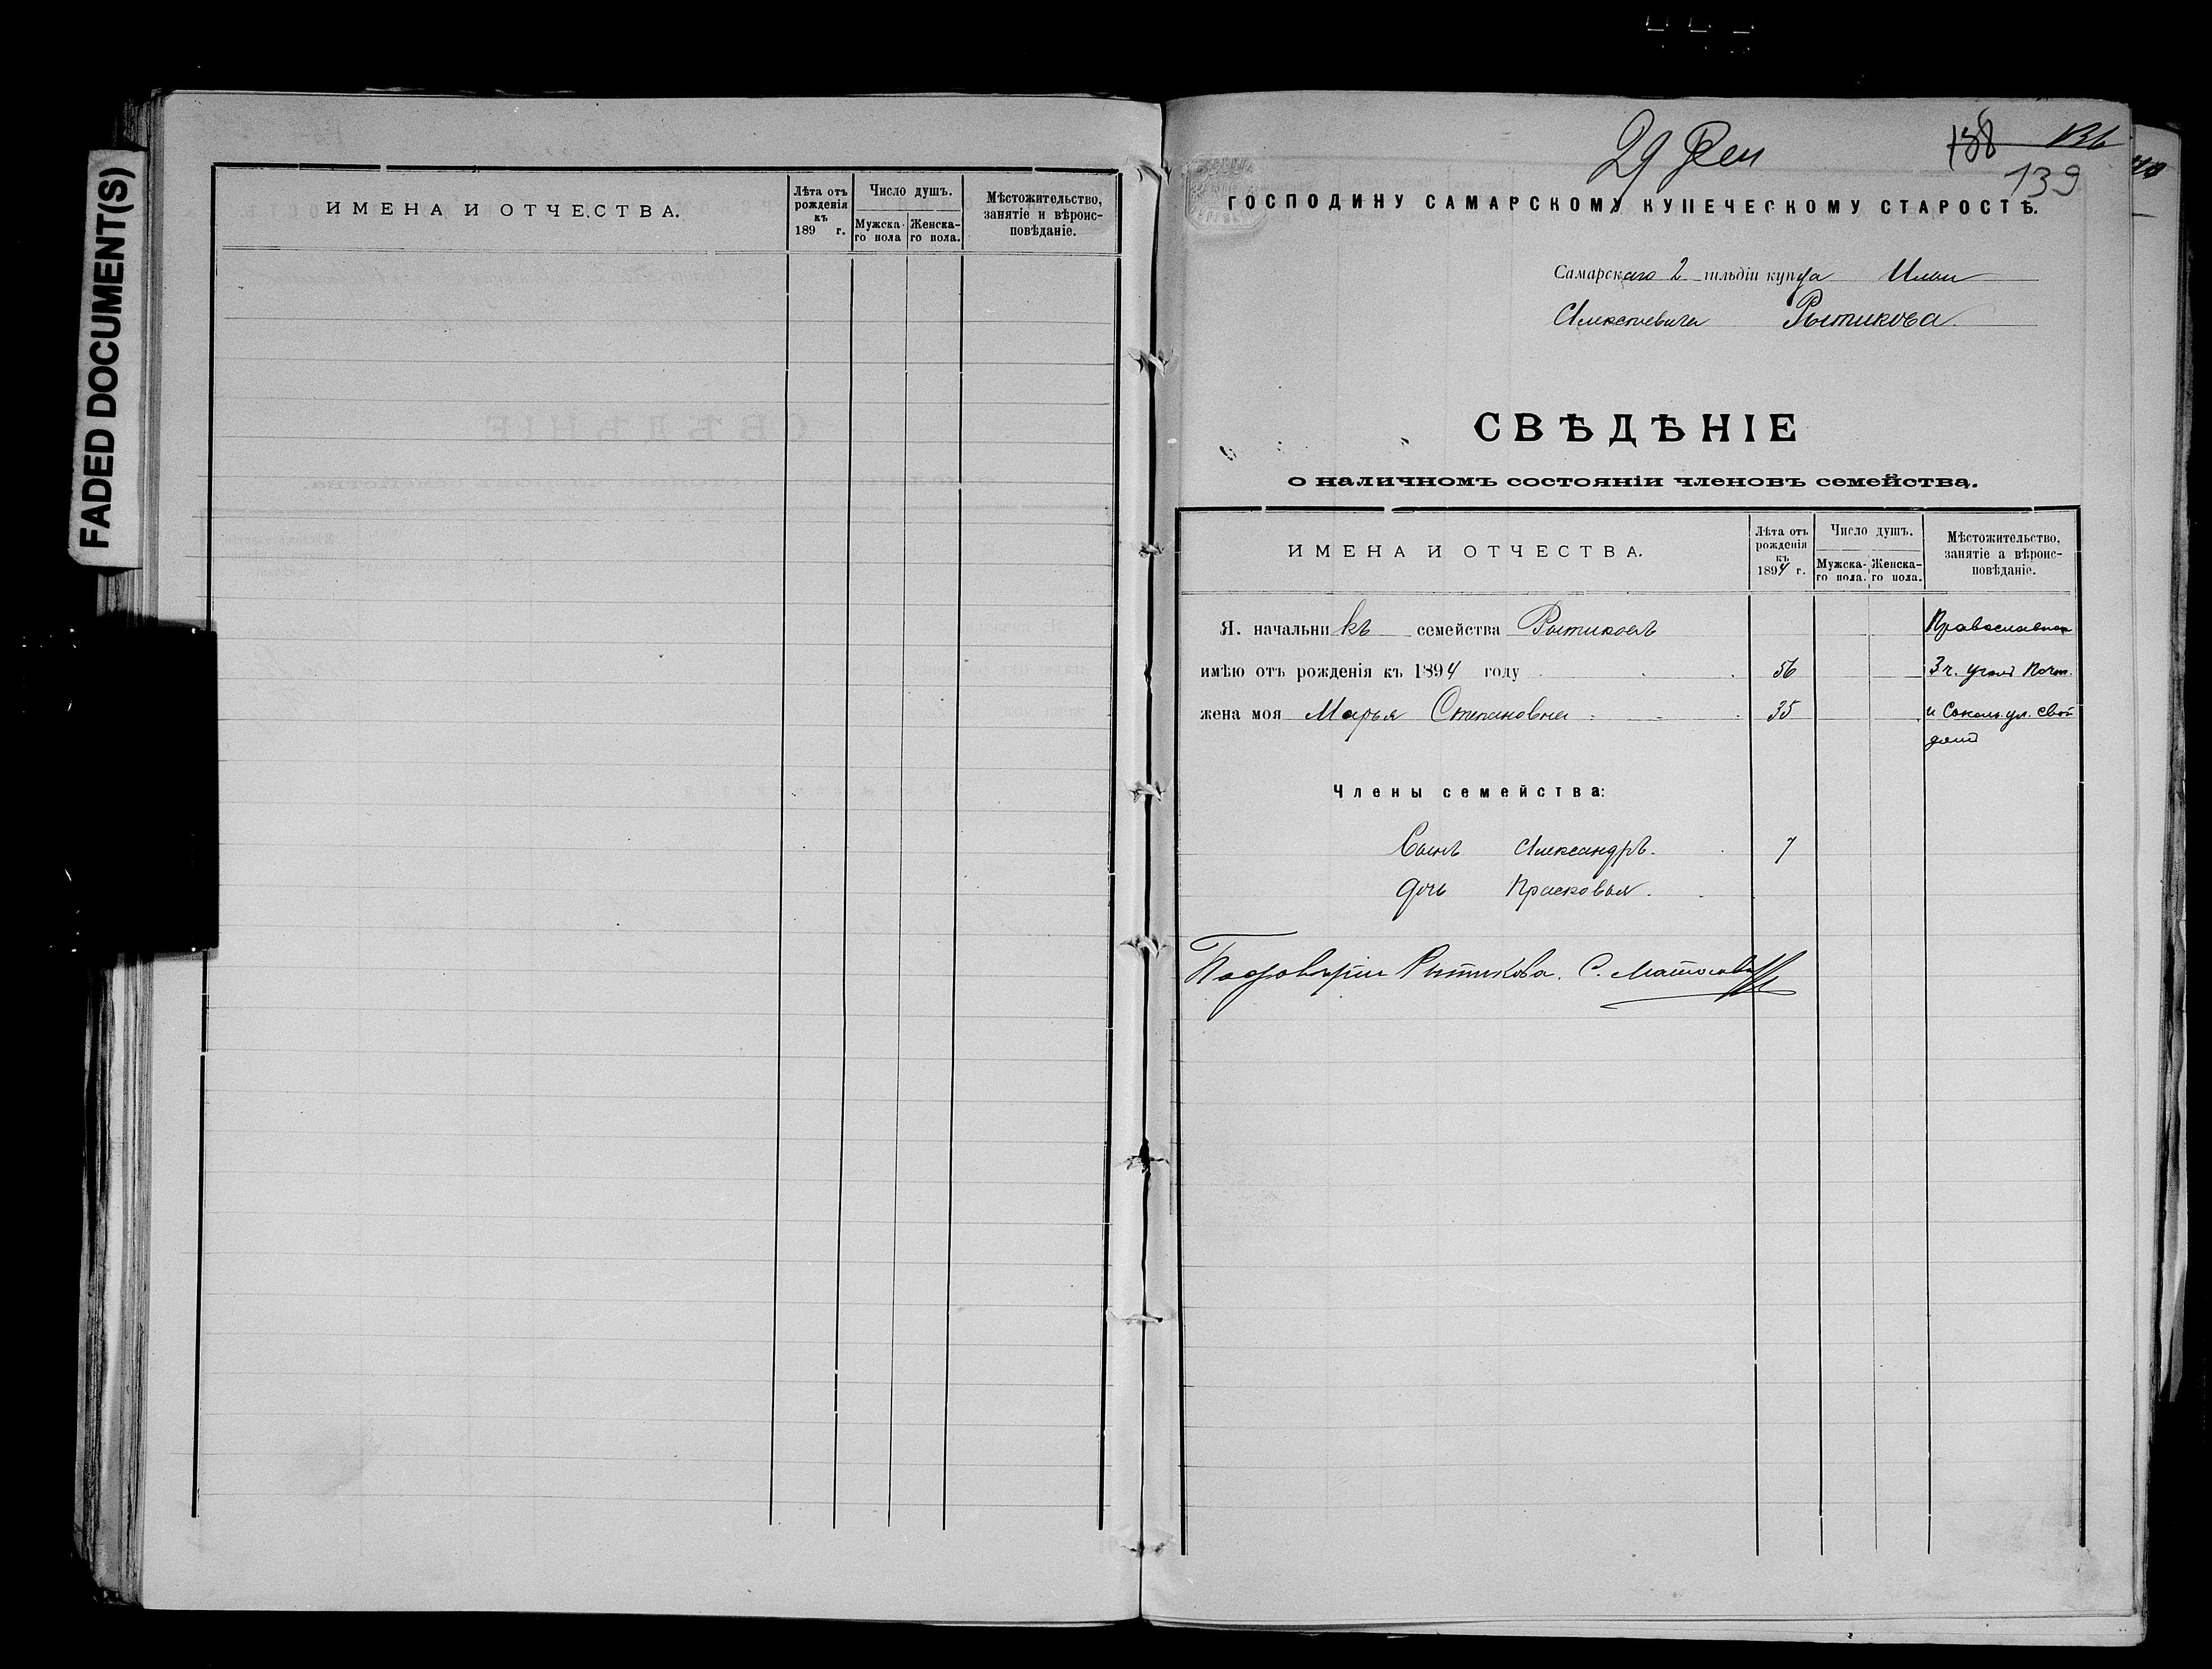 FADED DOCUMENT(S)
ИМЕНА И ОТЧЕСТВА.
Лѣта отъ рожденія къ 189 г.
Число душъ.
Мужска-го пола
Женска-го пола.
Мѣстожительство, занятіе и вѣроис-повѣданіе.
29 Дек
138 136
139
ГОСПОДИНУ САМАРСКОМУ КУПЕЧЕСКОМУ СТАРОСТѢ.
Самарскаго 2 гильдіи купца Ильи
Алексѣевича Рытикова.
СВѢДѢНІЕ
о наличномъ состояніи членовъ семейства.
ИМЕНА И ОТЧЕСТВА.
Лѣта отъ рожденія къ 1894 г.
Число душъ.
Мужска-го пола.
Женска-го пола.
Мѣстожительство, занятіе а вѣроис-повѣданіе.
Я. начальникъ семейства Рытиковъ Православнаго
имѣю отъ рожденія къ 1894 году 56 3 ч. уголъ Почт.
жена моя Марья Степановна 35 и Сокол. ул. свой
домъ
Члены семейства:
Сынъ Александръ. 7
Дочь Прасковья.
По довѣрію Рытикова. С.